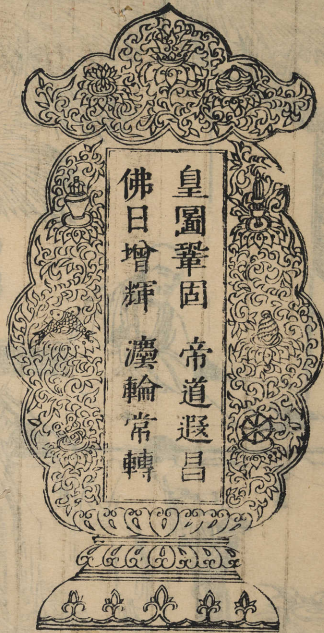 皇圖鞏固 帝道遐昌
佛日增輝 灋輪常轉